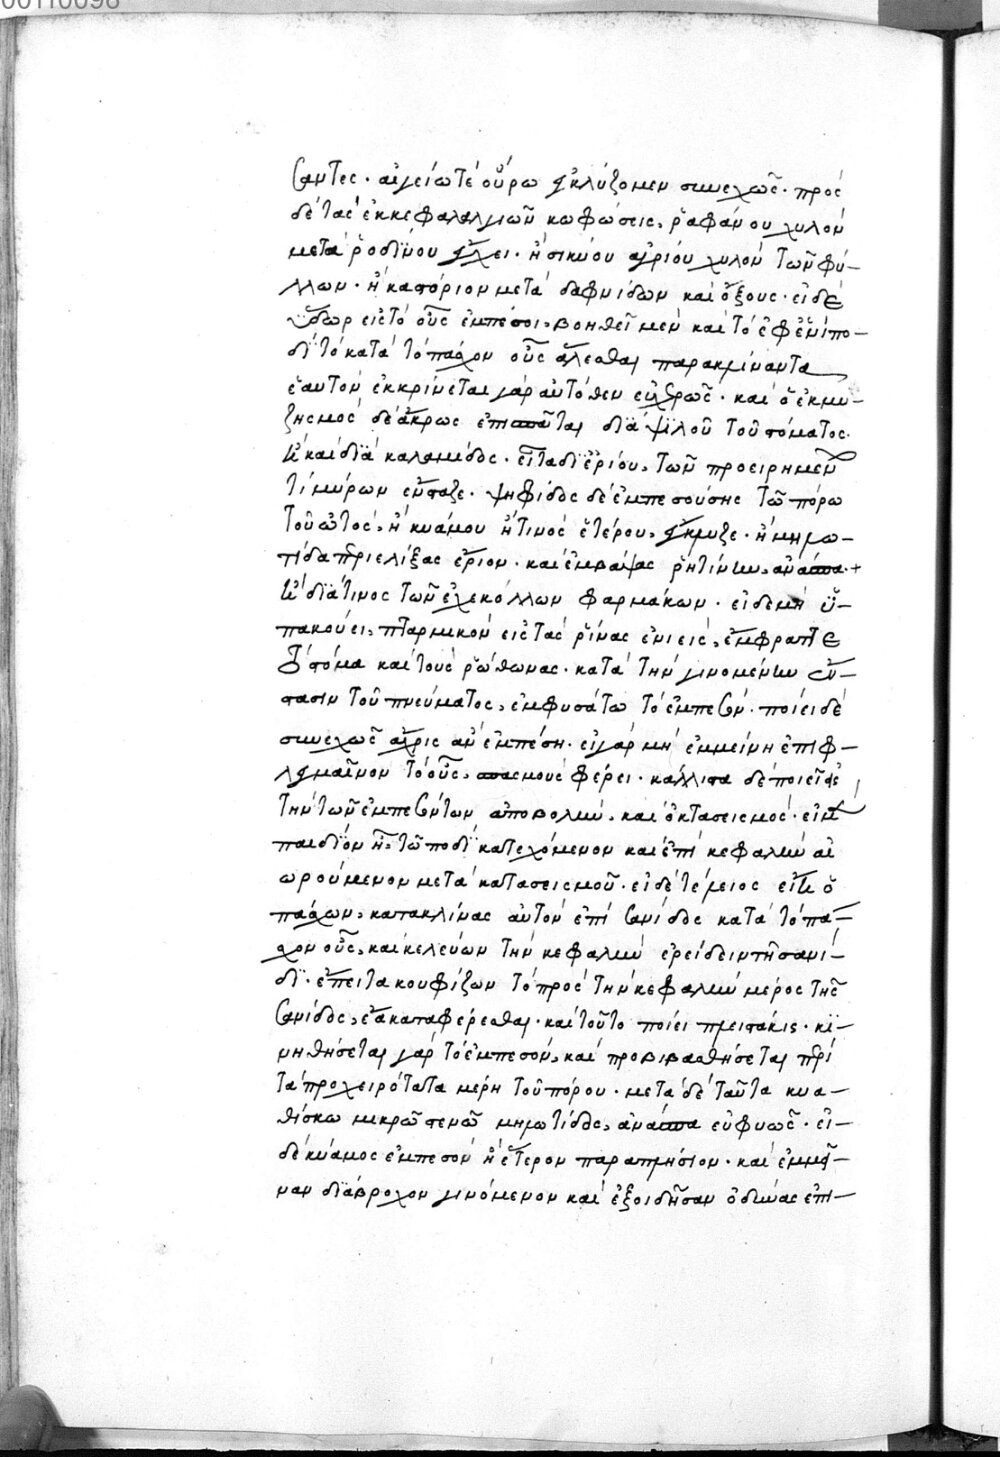 00110098
σαντες· αἰγείω τὲ οὔρω ἐγκλύζομεν συνεχῶς· πρὸς
δὲ τὰς ἐκ κεφαλαλγιῶν κωφώσεις, ῥαφάνου χυλὸν
μετὰ ῥοδίνου ἔγχει· ἢ σικύου ἀγρίου χυλὸν τῶν φύ–
λλων· ἢ καστόριον μετὰ δαφνίδων καὶ ὄξους· εἰ δὲ
ὕδωρ εἰς τὸ οὖς ἐμπέσοι, βοηθεῖ μὲν καὶ τὸ ἐφ' ἑνὶ πο–
δὶ τὸ κατὰ τὸ πάσχον οὖς ἅλεσθαι παρακρίναντα
ἑαυτὸν ἐκκρίνεται γὰρ αὐτόθεν εὐχερῶς· καὶ ὁ ἐκμυ–
ζησμὸς δὲ ἄκρως ἐπισπᾶται διὰ ψιλοῦ τοῦ στόματος·
ἢ καὶ διὰ καλαμίδος· εἶτα δι' ἐρίου, τῶν προειρημένων
τι μύρων ἔνσταζε· ψηφίδος δὲ ἐμπεσούσης τῶ πόρω
τοῦ ὠτὸς, ἢ κυάμου ἤ τινος ἑτέρου, ἔκμυζε· ἢ μηλω–
τίδα περιελίξας ἔριον· καὶ ἐμβάψας ῥητίνην, ἀνάσπα·+
ἢ διὰ τινος τῶν ἐχεκόλλων φαρμάκων· εἰ δὲ μὴ ὑ–
πακούει, πταρμικὸν εἰς τὰς ῥῖνας ἐνιεὶς, ἔμφραττε
τὸ στόμα καὶ τοὺς ῥώθωνας· κατὰ τὴν γινομένην ἔν–
στασιν τοῦ πνεύματος, ἐμφυσάτω τὸ ἐμπεσόν· ποίει δὲ
συνεχῶς ἄχρις ἂν ἐμπέση· εἰ γὰρ μὴ ἐμμείνη ἐπιφ–
λεγμαῖνον τὸ οὖς, σπασμοὺς φέρει· κάλλιστα δὲ ποιεῖ εἰς
τὴν τῶν ἐμπεσόντων ἀποβολὴν, καὶ ὁ κατασεισμὸς· εἰ μὲν
παιδίον ἦ, τῶ ποδὶ κατεχόμενον καὶ ἐπὶ κεφαλὴν αἰ
ωρούμενον μετὰ κατασεισμοῦ· εἰ δὲ τέλειος εἴη ὁ
πάσχων, κατακλίνας αὐτὸν ἐπὶ σανίδος κατὰ τὸ πά–
σχον οὖς, καὶ κελεύων τὴν κεφαλὴν ἐρείδειν τῆ σανί–
δι· ἔπειτα κουφίζων τὸ πρὸς τὴν κεφαλὴν μέρος τῆς
σανίδος, ἔα καταφέρεσθαι· καὶ τοῦτο ποίει πλειστάκις· κι–
νηθήσεται γὰρ τὸ ἐμπεσὸν, καὶ προβιβασθήσεται περὶ
τὰ προχειρότατα μέρη τοῦ πόρου· μετὰ δὲ ταῦτα κυα–
θίσκω μικρῶ στενῶ μηλωτίδος, ἀνάσπα εὐφυῶς· εἰ–
δὲ κύαμος ἐμπεσὸν ἢ ἕτερον παραπλήσιον· καὶ ἐμμεῖ–
ναν διάβροχον γινόμενον καὶ ἐξοιδῆσαν ὀδύνας ἐπι–